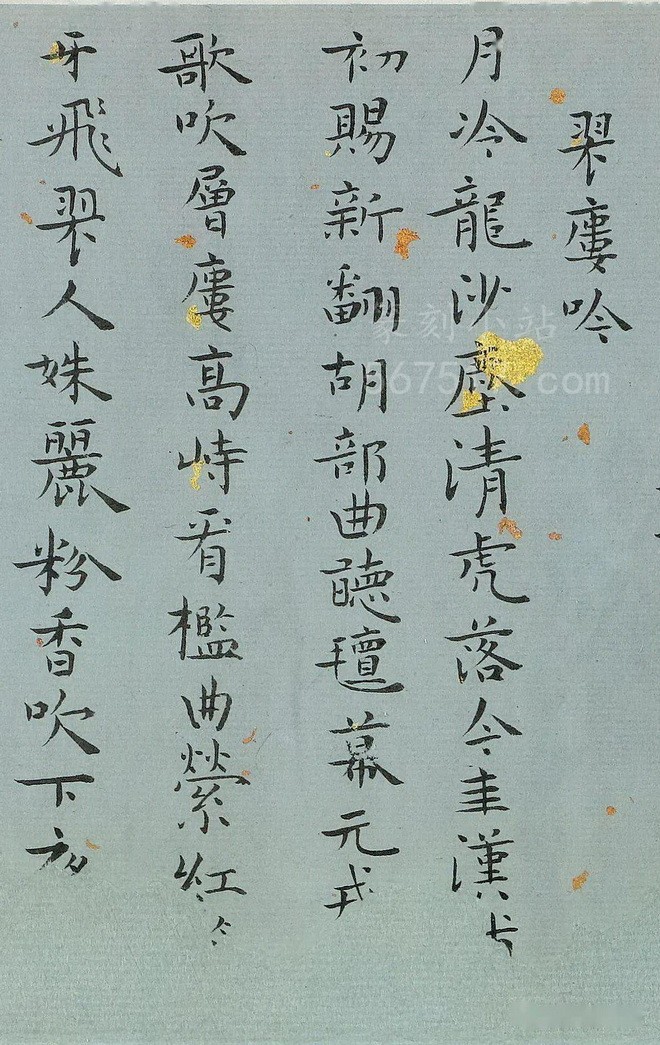 翠廔吟
月冷龍沙塵清虎落今年漢
初賜新翻胡部曲聽氊幕元戎
歌吹層廔高峙看檻曲縈紅
牙飛翠人姝麗粉香吹下
篆刻小站
.com